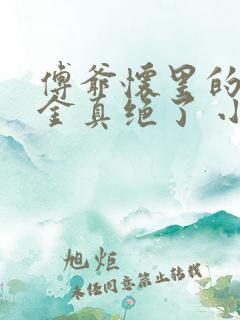 傅爷怀里的
金真绝了 小
旭炬
未经同意禁止转载